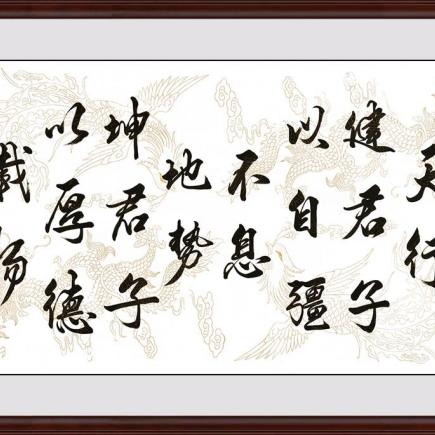 天行
健君子
以自彊
不息
地势
坤君子
以厚德
载物